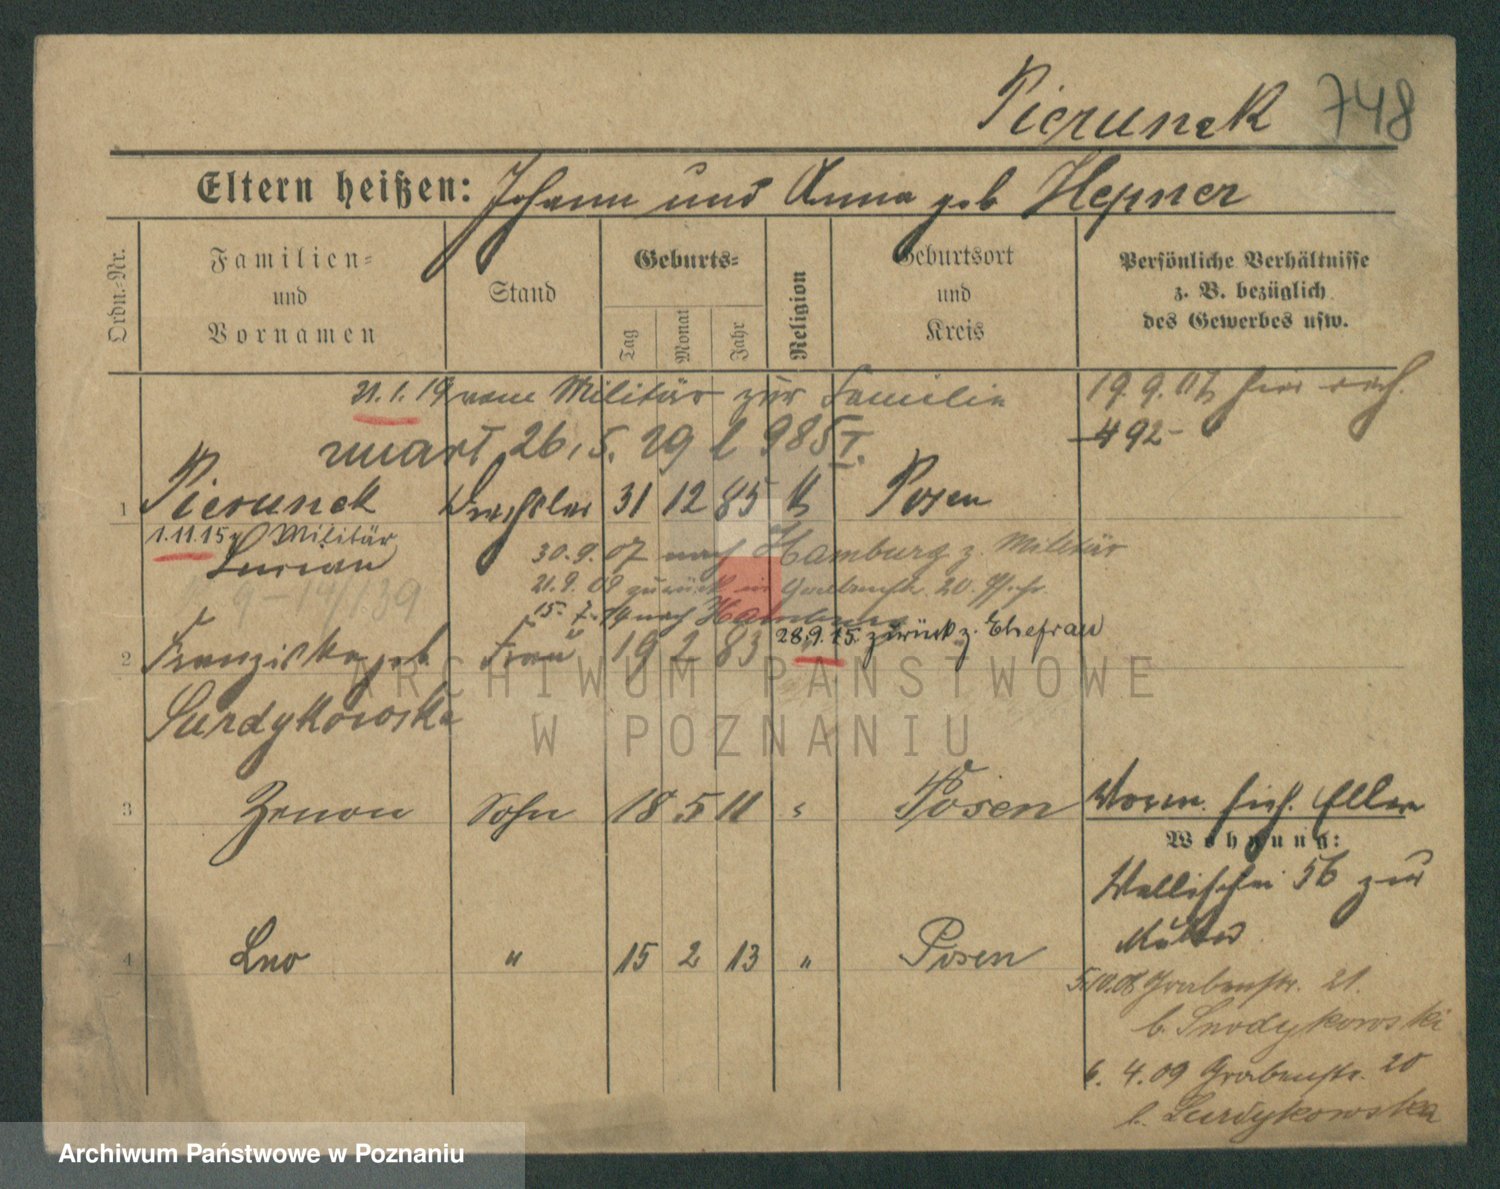 Pierunek 748
Eltern heißen: Johann und Anna geb Hepner
Ordn.-Nr.
Familien-
und
Vornamen
Stand
Geburts-
Tag
Monat
Jahr
Religion
Geburtsort
und
Kreis
Persönliche Verhältnisse
z. B. bezüglich
des Gewerbes usw.
21. 1. 19 vom Militär zur Familie
19. 9. 07 hier
492
26. 5. 29
1 Pierunek Drechsler 31 12 85 k Posen
1.11.15 z Militär
Lucian
30. 9. 07 nach Hamburg z. Militär
21. 9. 09 zurück in Grabenstr. 20
15. 7. 14 nach Hamburg
28.9.15. zurück z. Ehefrau
2 Franziska geb. Frau 19 2 83
Surdykowska
3 Zenon Sohn 18 5 11 " Posen
Worm. sieh. Eltern
Wohnung:
Wallischei 56 zur
Mutter
4 Leo " 15 2 13 " Posen
5.10.08 Grabenstr. 21.
b. Surdykowski
6. 4. 09 Grabenstr. 20
b. Surdykowska
ARCHIWUM PAŃSTWOWE
W POZNANIU
Archiwum Państwowe w Poznaniu